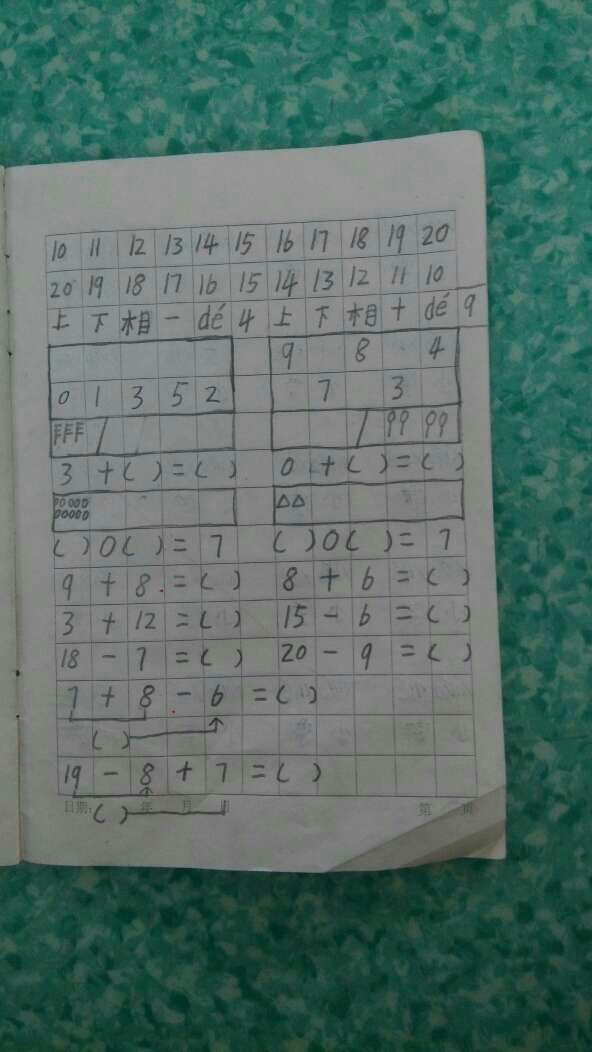 10 11 12 13 14 15 16 17 18 19 20
20 19 18 17 16 15 14 13 12 11 10
上 下 相 一 dé 4 上 下 相 十 dé 9
9 8 4
0 1 3 5 2 7 3
3 + ( ) = ( ) 0 + ( ) = ( )
( ) ○ ( ) = 7 ( ) ○ ( ) = 7
9 + 8 = ( ) 8 + 6 = ( )
3 + 12 = ( ) 15 - 6 = ( )
18 - 7 = ( ) 20 - 9 = ( )
7 + 8 - 6 = ( )
( )
19 - 8 + 7 = ( )
日期: 年 月 日 第 页
( )